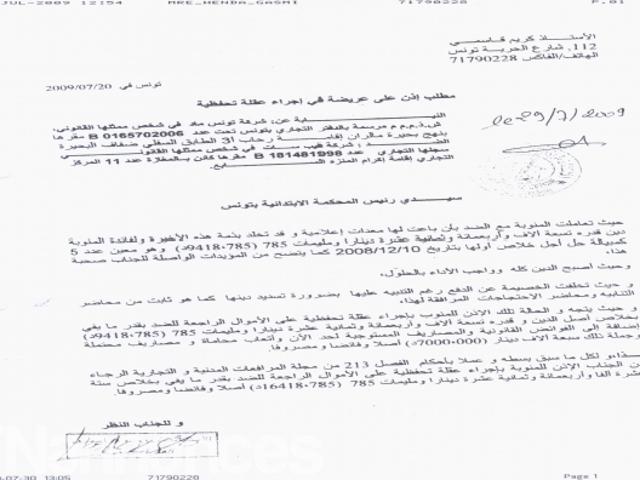 JUL-2009 12:54 MRE_HENDA_GASMI 71790228 P.01
الأستاذ كريم قاسمي
112, شارع الحرية تونس
الهاتف/الفاكس 71790228
تونس في 2009/07/20
مطلب إذن على عريضة في إجراء عقلة تحفظية
le 29/7/2009
النيابة عن: شركة تونس ماد في شخص ممثلها القانوني,
ش.ذ.م.م مرسمة بالدفتر التجاري بتونس تحت عدد B 0165702006 مقرها
بنهج بحيرة مالران إقامة رحاب 31 الطابق السفلي ضفاف البحيرة
الضد: شركة في شخص ممثلها القانوني
سجلها التجاري عدد B 181481998 مقرها كائن بالمغازة عدد 11 المركز
التجاري إقامة إكرام المنزه السابع.
سيدي رئيس المحكمة الابتدائية بتونس
حيث تعاملت المنوبة مع الضد بأن باعت لها معدات إعلامية و قد تخلد بذمة هذه الأخيرة ولفائدة المنوبة
دين قدره تسعة آلاف وأربعمائة وثمانية عشرة دينارا ومليمات 785 (9418.785د) وهو معين عدد 5
كمبيالة حل أجل خلاص أولها بتاريخ 2008/12/10 كما يتضح من المؤيدات الواصلة للجناب صحبة
هذا.
وحيث أصبح الدين كله وواجب الأداء بالحلول.
و حيث تخلفت الخصيمة عن الدفع رغم التنبيه عليها بضرورة تسديد دينها كما هو ثابت من محاضر
التنبيه ومحاضر الاحتجاجات المرافقة لهذا.
و حيث يتجه و الحالة تلك الإذن للمنوب بإجراء عقلة تحفظية على الأموال الراجعة للضد بقدر ما يفي
بخلاص أصل الدين و قدره تسعة آلاف وأربعمائة وثمانية عشرة دينارا ومليمات 785 (9418.785د)
إضافة إلى الفوائض القانونية والمصاريف المستوجبة لحد الآن وأتعاب محاماة و مصاريف محتملة
وجملة ذلك سبعة آلاف دينار (7000.000د) أصلا وفائضا ومصروفا.
لذا ولكل ما سبق بسطه و عملا بأحكام الفصل 213 من مجلة المرافعات المدنية و التجارية الرجاء
من الجناب الإذن للمنوبة بإجراء عقلة تحفظية على الأموال الراجعة للضد بقدر ما يفي بخلاص ستة
عشرة ألفا وأربعمائة وثمانية عشرة دينارا ومليمات 785 (16418.785د) أصلا وفائضا ومصروفا.
و للجناب النظر
-07-30 13:05 71790228 Page 1